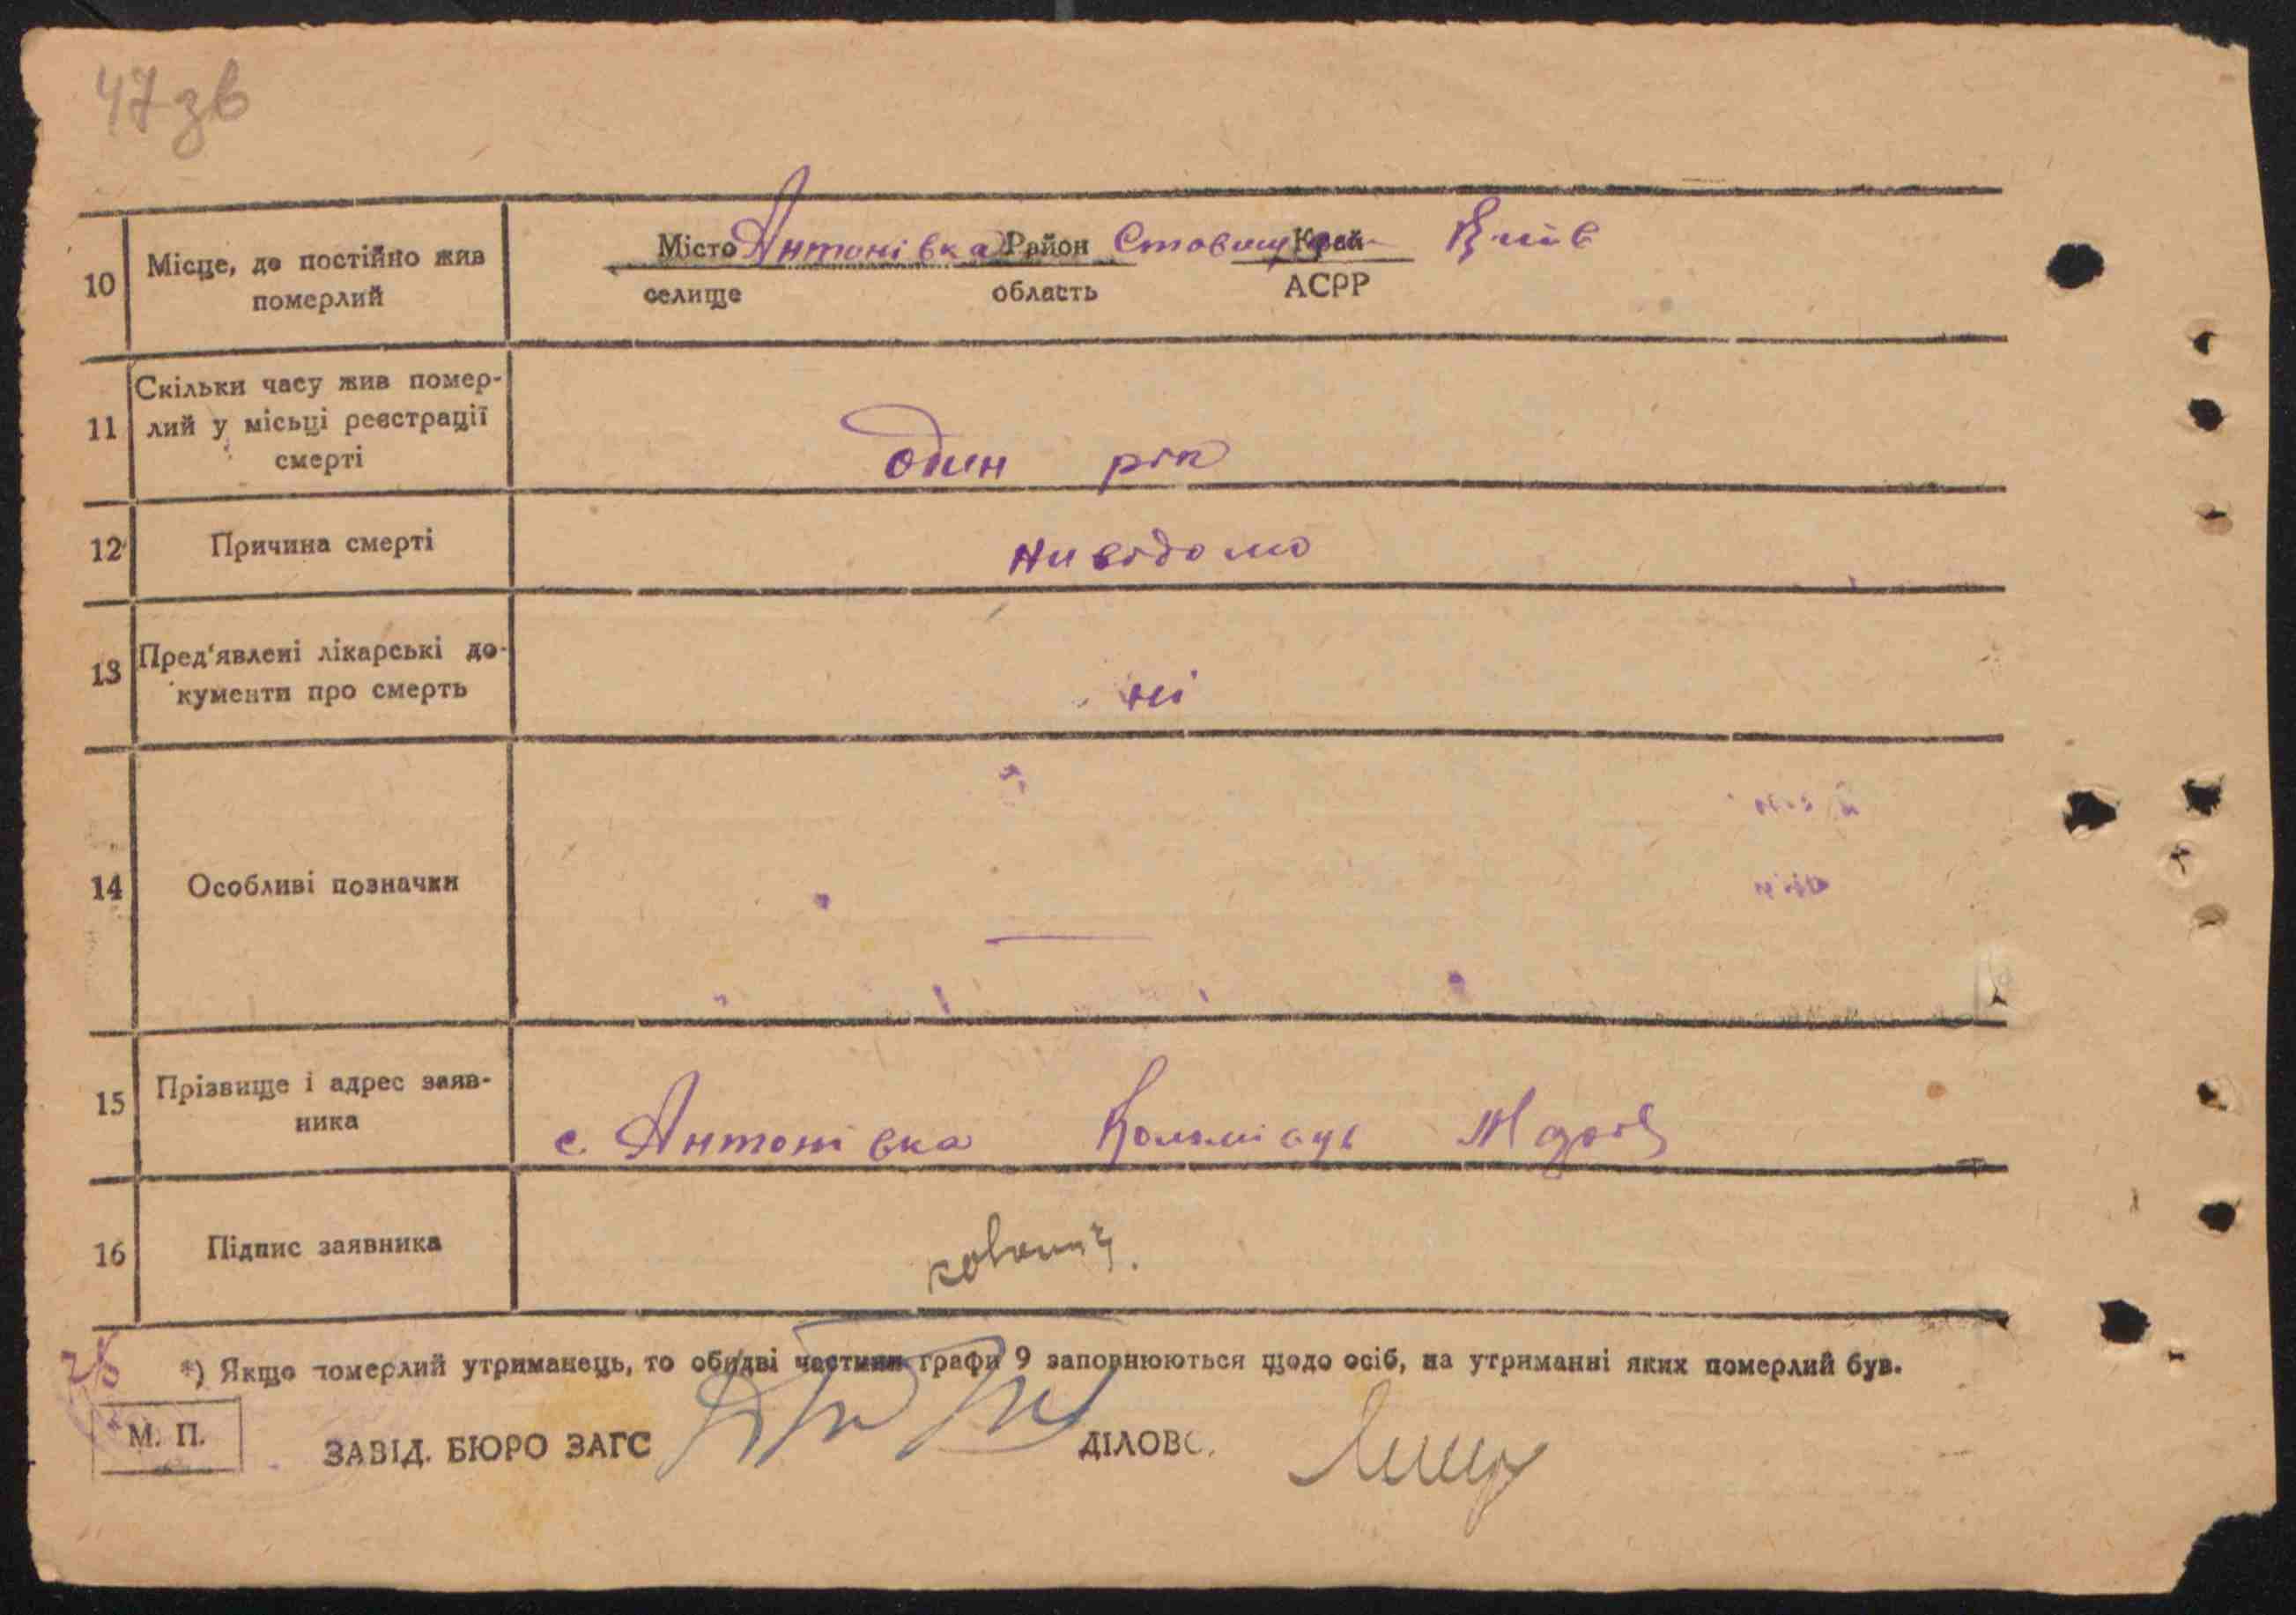 47 зв
10 Місце, де постійно жив померлий
Місто Антонівка Район Ставищ Край Київ
селище область АСРР
11 Скільки часу жив помер-
лий у місьці реєстрації
смерті
один рік
12 Причина смерті
Нивідомо
13 Пред'явлені лікарські до-
кументи про смерть
ні
14 Особливі позначки
15 Прізвище і адрес заяв-
ника
с. Антонівка Коломієць
16 Підпис заявника
*) Якщо померлий утриманець, то обидві частини графи 9 заповнюються щодо осіб, на утриманні яких померлий був.
М. П.
ЗАВІД. БЮРО ЗАГС ДІЛОВС.